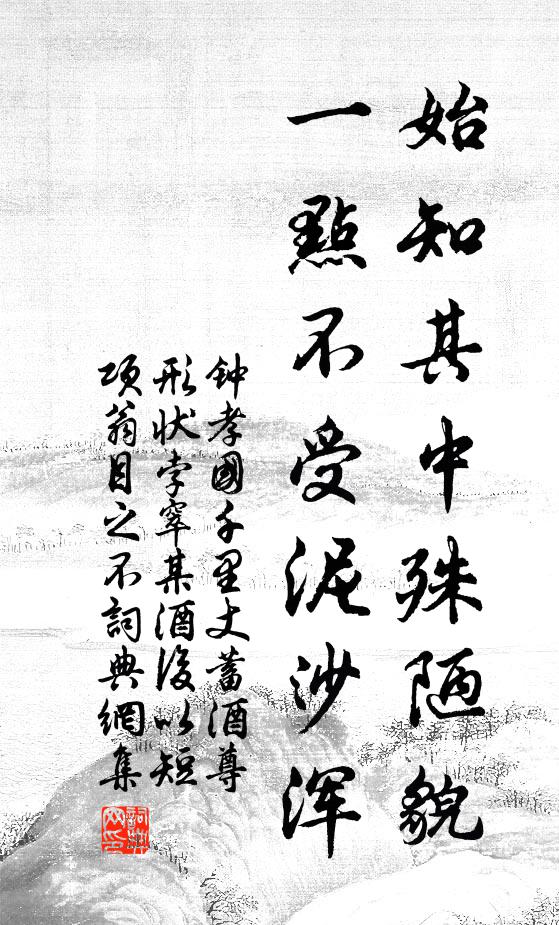 始知其中殊陋貌
一點不受泥沙浑
钟孝國千里丈蓄酒尊
形状孛窣某酒後以短
项翁目之不詞典網集